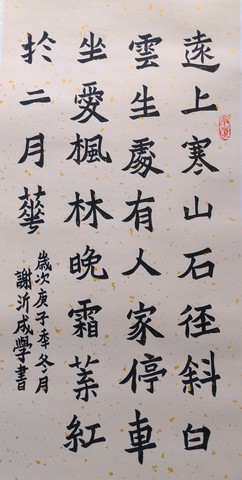 遠上寒山石徑斜白
雲生處有人家停車
坐愛楓林晚霜葉紅
於二月華
歲次庚子年冬月
謝沂成學書